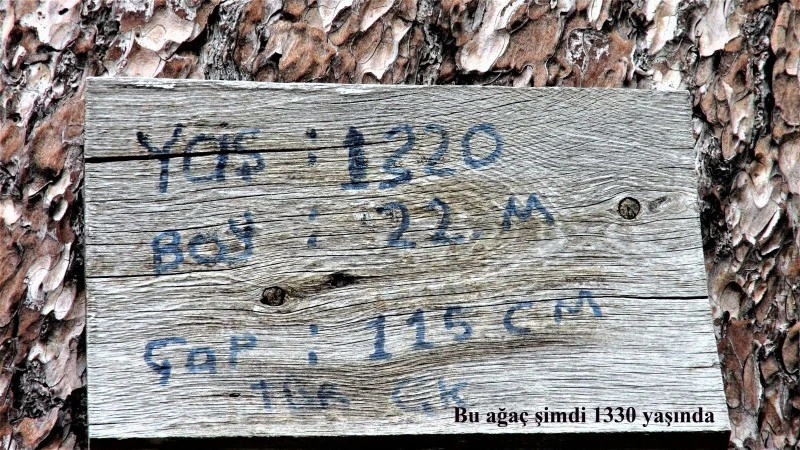 Yaş : 1320
Boy : 22. M
Çap : 115 CM
Bu ağaç şimdi 1330 yaşında